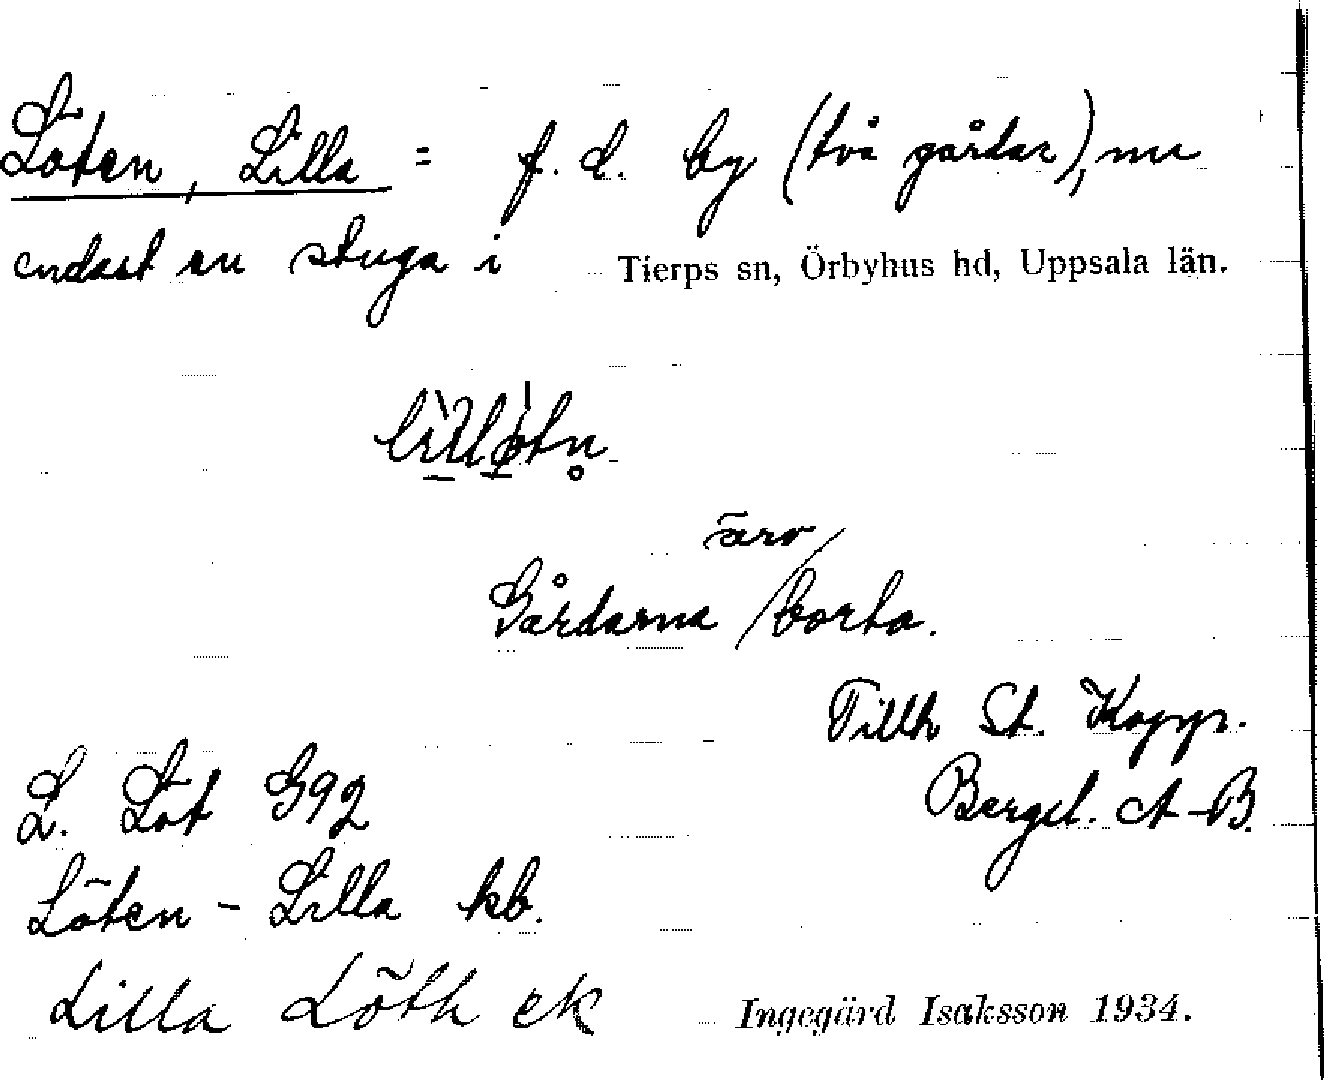 Löten, Lilla = f. d. by (två gårdar), nu
endast en stuga i Tierps sn, Örbyhus hd, Uppsala län.
äro
Gårdarna / borta.
Tillh St. Kopp.
Bergsl. A-B.
L. Löt G92
Löten - Lilla kb.
Lilla Löth ek
Ingegärd Isaksson 1934.